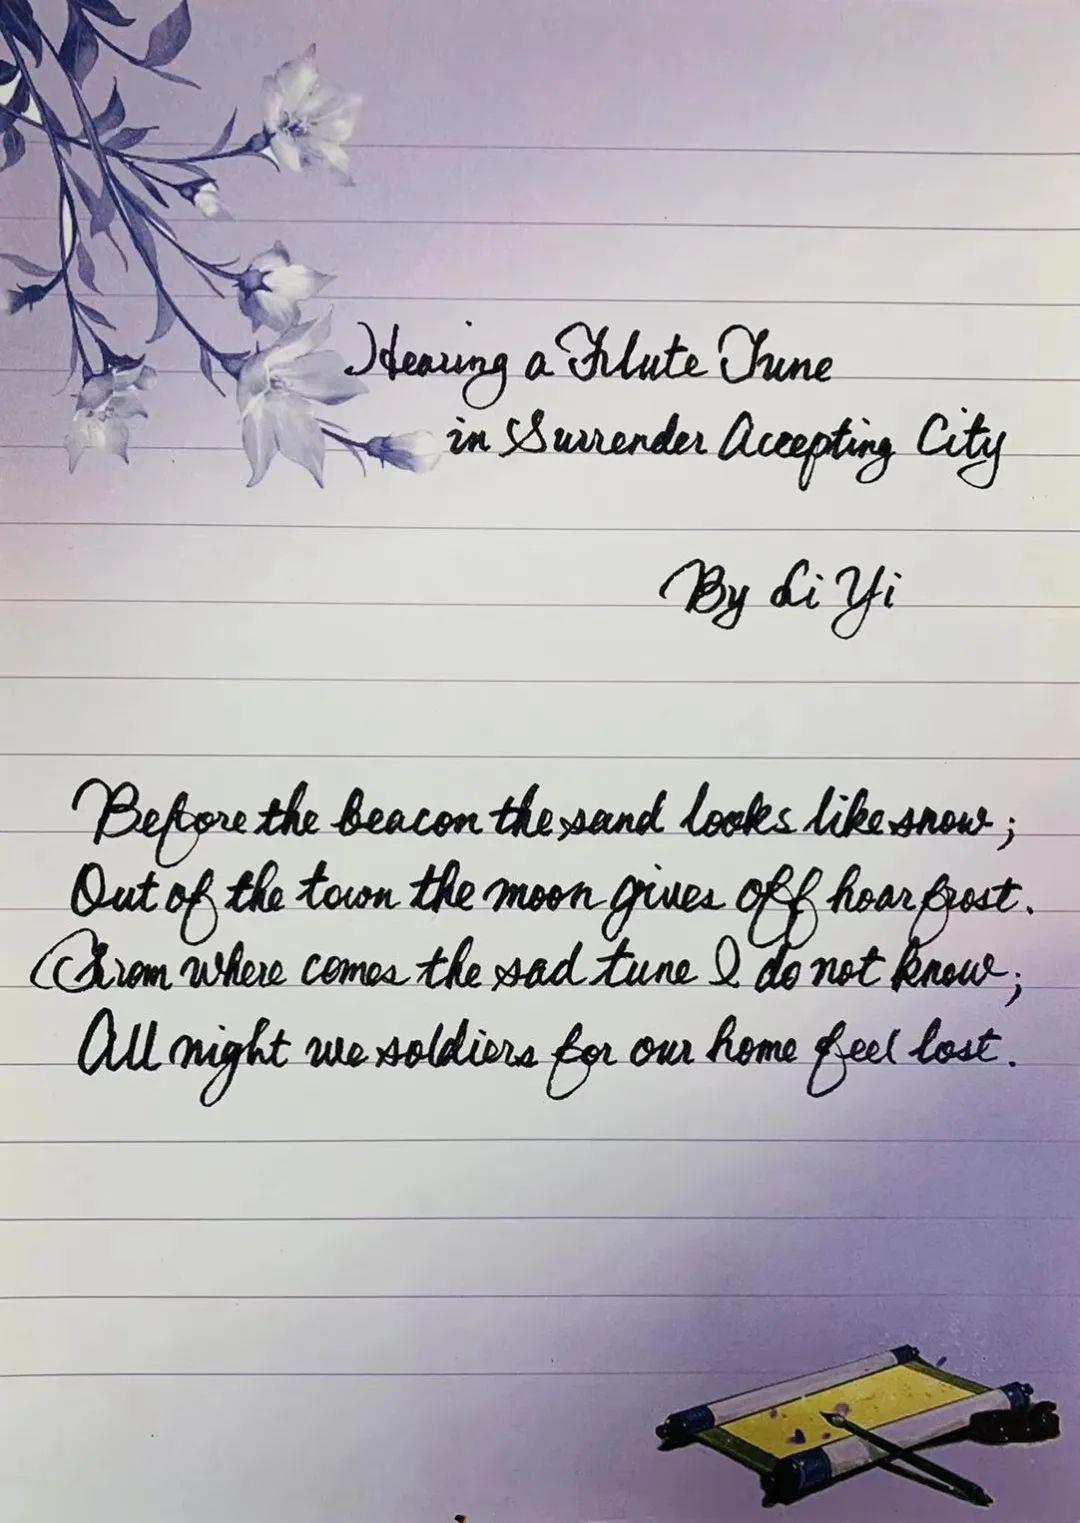 Hearing a Flute Tune
in Surrender Accepting City
By Li Yi
Before the beacon the sand looks like snow;
Out of the town the moon gives off hoar frost.
From where comes the sad tune I do not know;
All night we soldiers for our home feel lost.